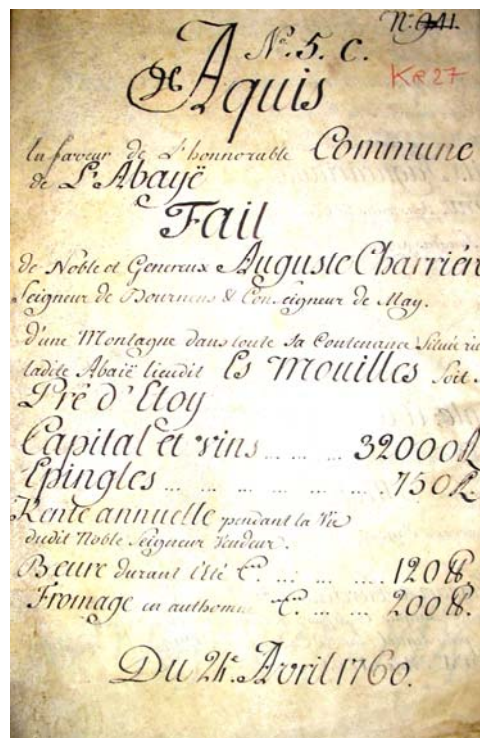 N.º 941.
Nº. 5. C.
Ke 27
Aquis
En faveur de L'honnorable Commune
de L'Abayë
Fait
de Noble et Genereux Auguste Charriér
Seigneur de Bournens & Conseigneur de May.
d'une Montagne dans toute sa Contenance Située ri
ladite Abaïë lieudit Es Mouilles Soit
Pré d'Etoy
Capital et vins ... ... 32000
Epingles ... ... ... ... ... 750
Rente annuelle pendant la Vie
dudit Noble Seigneur Vendeur.
Beure durant l'été ... ... ... 120 ℔.
Fromage en authomne ... ... 200 ℔.
Du 24e. Avril 1760.